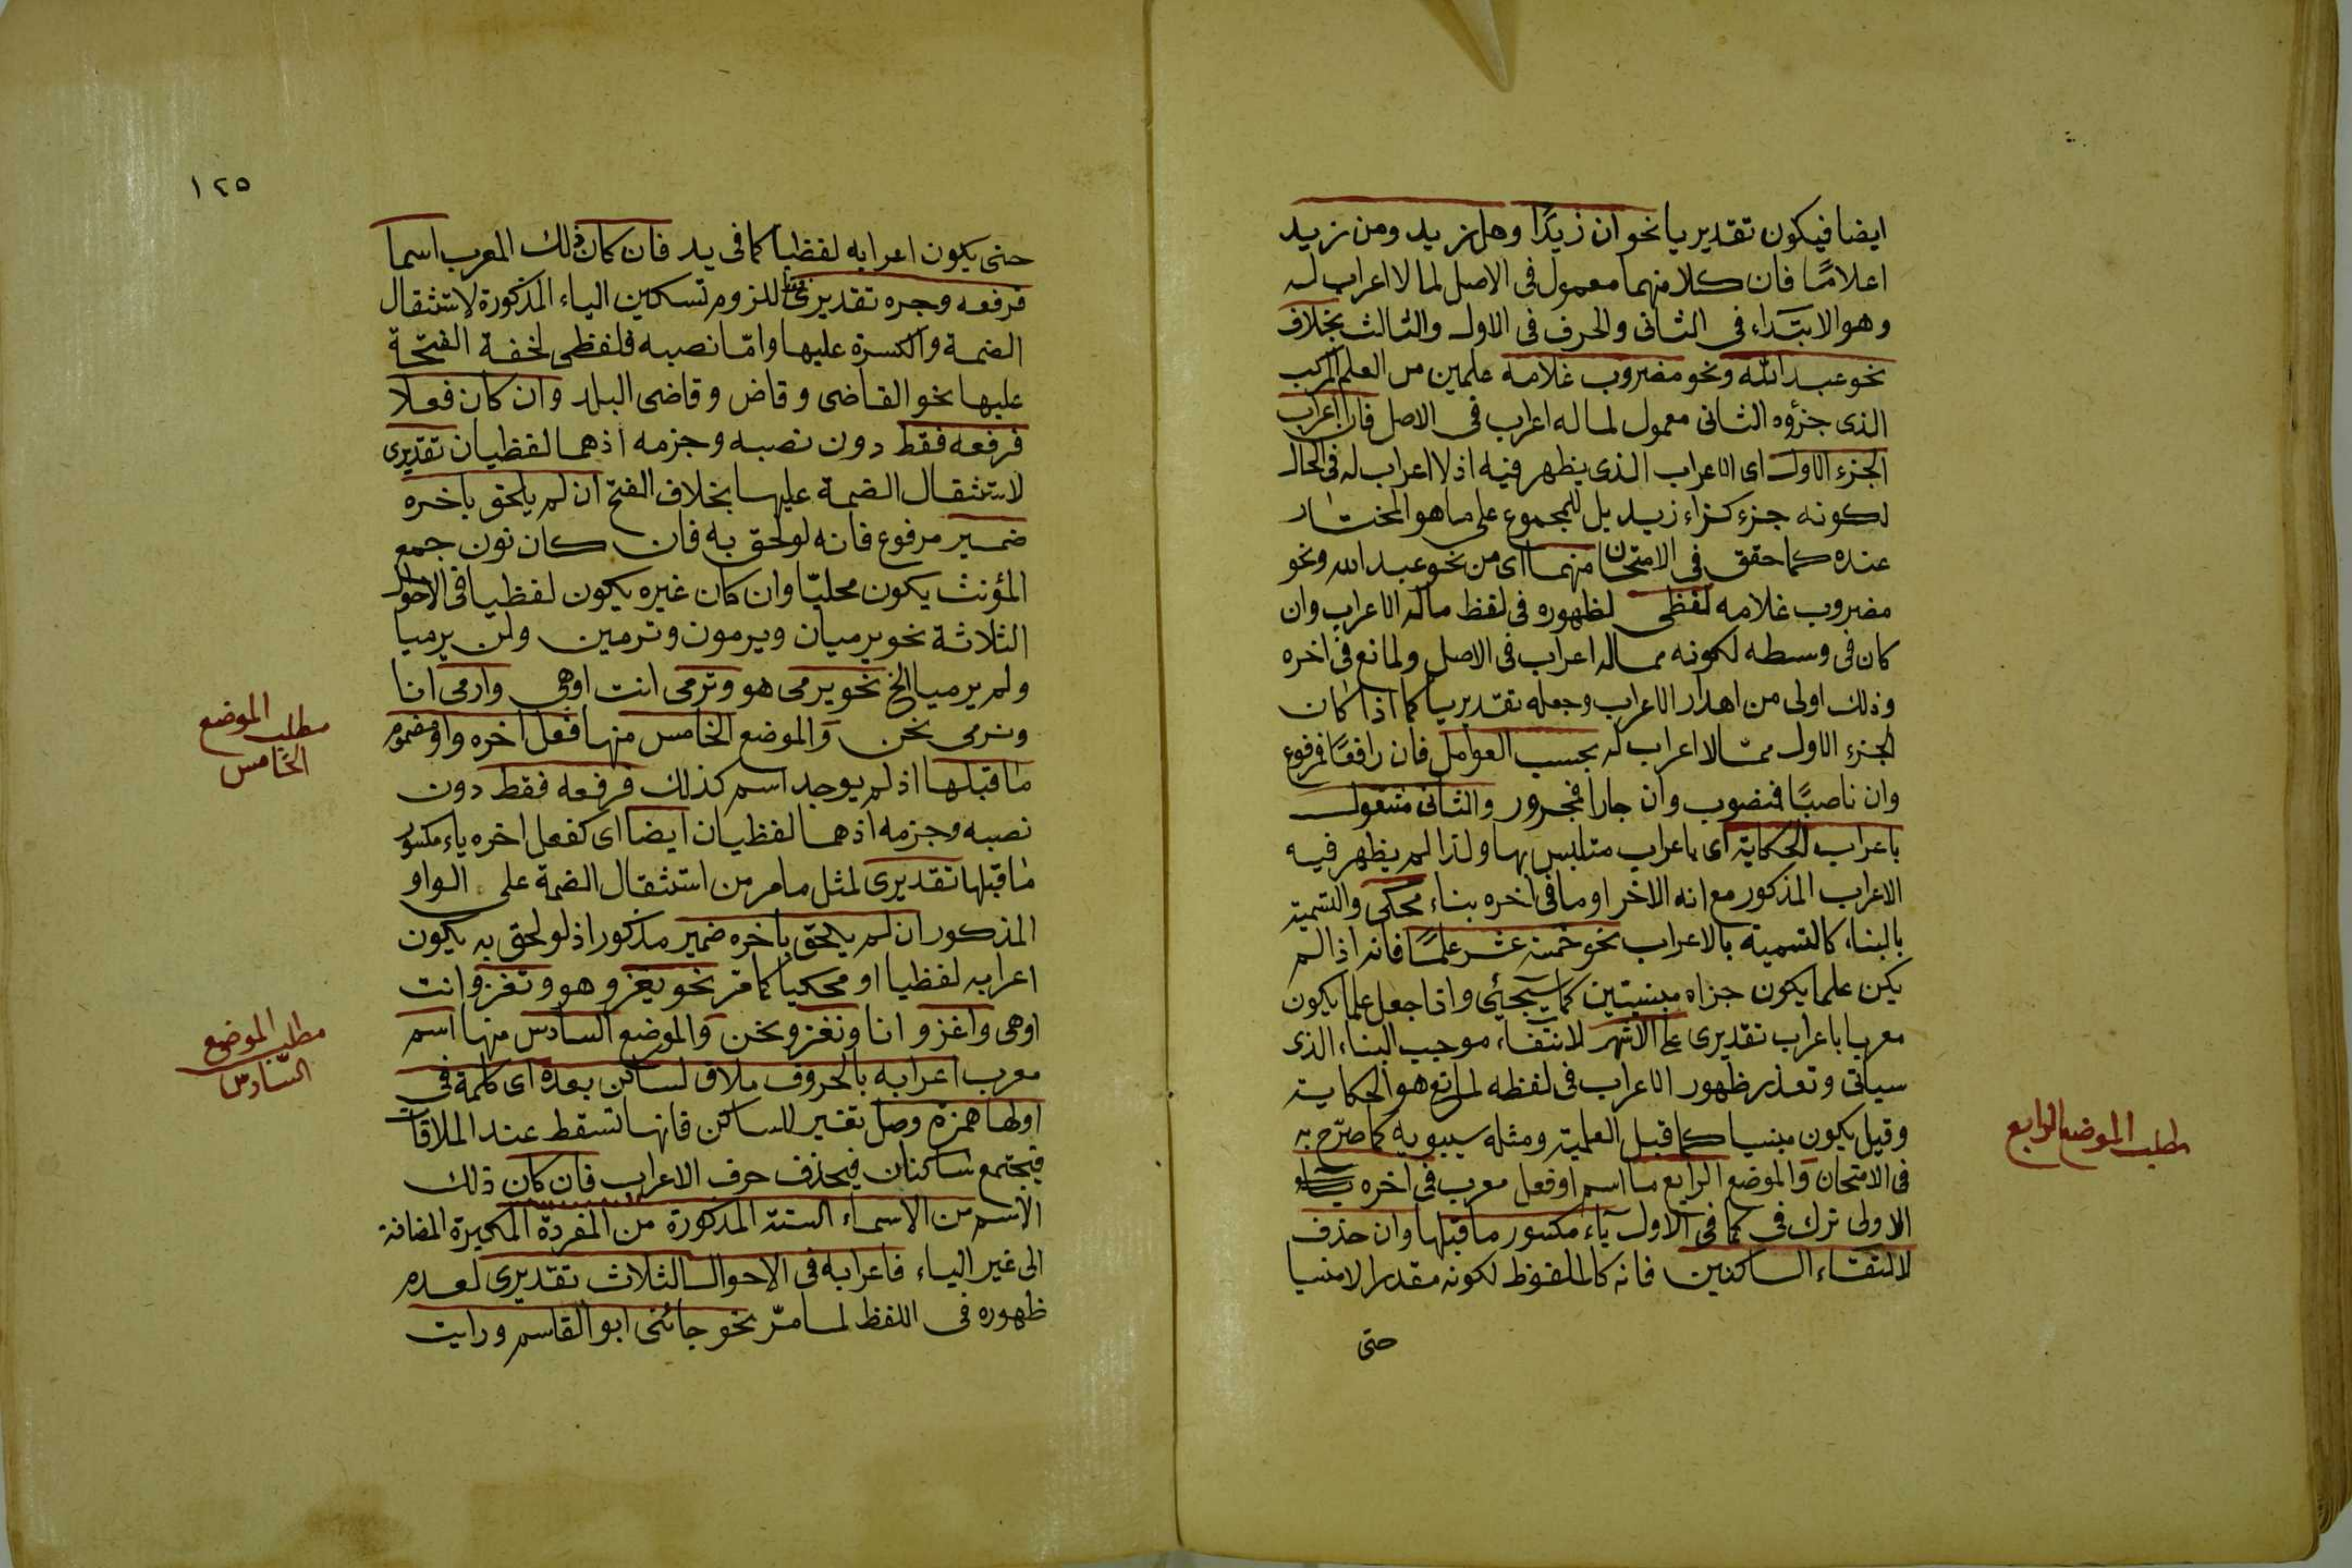 ايضا فيكون تقديريا نحو ان زيدًا وهل زيد ومن زيد
اعلامًا فان كلا منهما معمول فى الاصل لما لا اعراب له
وهو الابتداء فى الثانى والحرف فى الاول والثالث بخلاف
نحو عبد الله ونحو مضروب غلامه علمين من العلم المركب
الذى جزؤه الثانى معمول لما له اعراب فى الاصل فان اعراب
الجزء الاول اى الاعراب الذى يظهر فيه اذ لا اعراب له فى الحال
لكونه جزء كزاء زيد بل للمجموع على ما هو المختار
عنده كما حقق فى الامتحان منهما اى من نحو عبد الله ونحو
مضروب غلامه لفظى لظهوره فى لفظ ماله الاعراب وان
كان فى وسطه لكونه مماله اعراب فى الاصل ولمانع فى اخره
وذلك اولى من اهدار الاعراب وجعله تقديريا كما اذا كان
الجزء الاول ممّا لا اعراب له بحسب العوامل فان رافعًا فمرفوع
وان ناصبًا فمنصوب وان جارا فمجرور والثانى مشغول
باعراب الحكاية اى باعراب متلبس بها ولذا لم يظهر فيه
الاعراب المذكور مع انه الاخر او ما فى اخره بناء محكى والتسمية
بالبناء كالتسمية بالاعراب نحو خمسة عشر علمًا فانه اذا لم
يكن علما يكون جزاه مبنيتين كما سيجئى واذا جعل علما يكون
معربا باعراب تقديرى على الاشهر لانتفاء موجب البناء الذى
سياتى وتعذر ظهور الاعراب فى لفظه لمانع هو الحكاية
وقيل يكون مبنيا كما قبل العلمية ومثله سيبويه كما صرّح به
فى الامتحان والموضع الرابع ما اسم او فعل معرب فى اخره
الاولى ترك فى كما فى الاول ياء مكسور ما قبلها وان حذف
لالتقاء الساكنين فانه كالملفوظ لكونه مقدرا لا منسيا
حتى
مطلب الموضع الرابع
١٢٥
حتى يكون اعرابه لفظيا كما فى يد فان كان ذلك المعرب اسما
فرفعه وجره تقديرى للزوم تسكين الياء المذكورة لاستثقال
الضمة والكسرة عليها وامّا نصبه فلفظى لخفة الفتحة
عليها نحو القاضى وقاض وقاضى البلد وان كان فعلا
فرفعه فقط دون نصبه وجزمه اذهما لفظيان تقديرى
لاستثقال الضمة عليها بخلاف الفتح ان لم يلحق باخره
ضمير مرفوع فانه لو لحق به فان كان نون جمع
المؤنث يكون محليّا وان كان غيره يكون لفظيا فى الاحوال
الثلاثة نحو يرميان ويرمون وترمين ولن يرميا
ولم يرميا الخ نحو يرمى هو وترمى انت اوهى وارمى انا
ونرمى نحن والموضع الخامس منها فعل اخره واو مضموم
ما قبلها اذ لم يوجد اسم كذلك فرفعه فقط دون
نصبه وجزمه اذهما لفظيان ايضا اى كفعل اخره ياء مكسور
ما قبلها تقديرى لمثل ما مر من استثقال الضمة على الواو
المذكور ان لم يلحق باخره ضمير مذكور اذ لو لحق به يكون
اعرابه لفظيا او محكيا كما مر نحو يغزو هو وتغزو انت
اوهى واغزو انا ونغزو نحن والموضع السادس منها اسم
معرب اعرابه بالحروف ملاق لساكن بعده اى كلمة فى
اولها همزة وصل تفسير للساكن فانها تسقط عند الملاقات
فيجتمع ساكنان فيحذف حرف الاعراب فان كان ذلك
الاسم من الاسماء الستة المذكورة من المفردة المكبرة المضافة
الى غير الياء فاعرابه فى الاحوال الثلاث تقديرى لعدم
ظهوره فى اللفظ لما مرّ نحو جائنى ابو القاسم ورايت
مطلب الموضع
الخامس
مطلب الموضع
السّادس